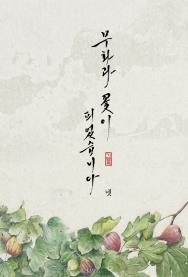 무화과 꽃이
피었습니다
넷